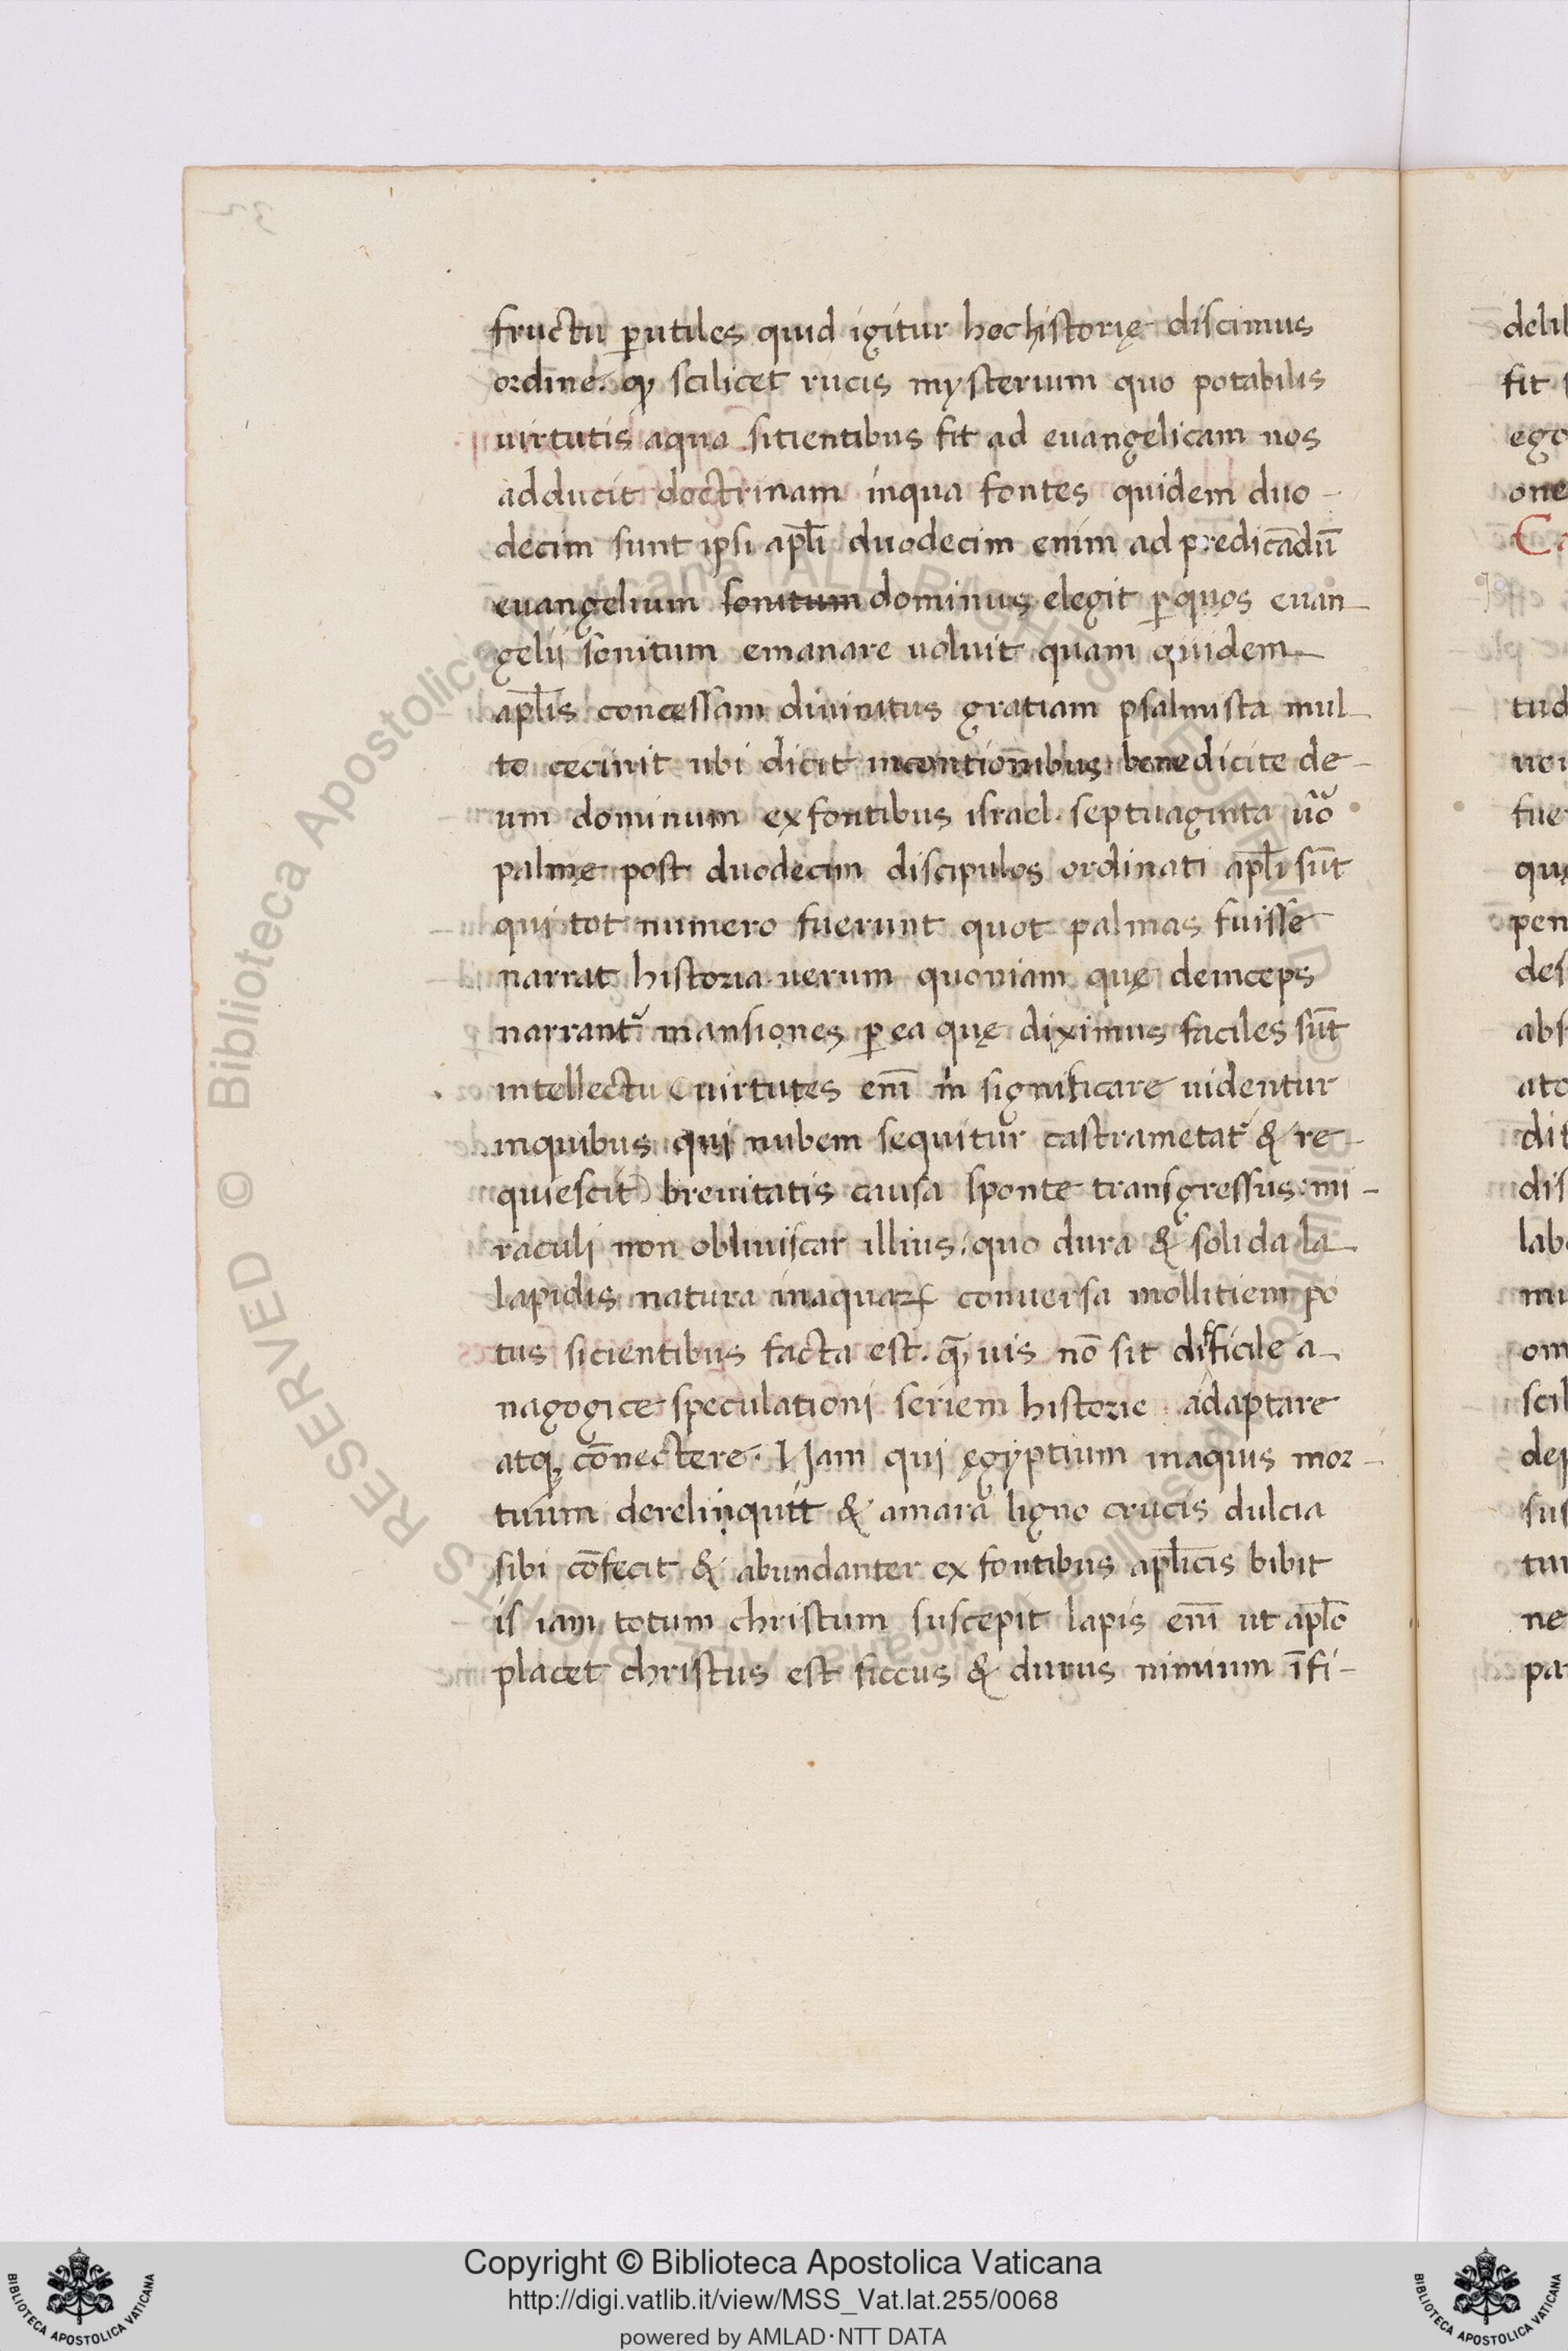 fructu ꝑutiles quid igitur hoc historię discimus
ordine. ꝙ scilicet rucis mysterium quo potabilis
uirtutis aqua sitientibus fit ad euangelicam nos
adducit doctrinam inqua fontes quidem duo-
decim sunt ipsi apl̄i duodecim enim ad predicādū
euangelium sonitum dominus elegit ꝑ quos euan-
gelij sonitum emanare uoluit quam quidem
apl̄is concessam diuinitus gratiam psalmista mul-
to cecinit ubi dicit incontioībus benedicite de-
um dominum ex fontibus israel. septuaginta u̅o
palmę post duodecim discipulos ordinati apl̄i sūt
qui tot numero fuerunt quot palmas fuisse
narrat historia uerum quoniam quę deinceps
narrant᷑ mansiones ꝑ ea quę diximus faciles sūt
intellectu (uirtutes enī m̄ significare uidentur
inquibus qui nubem sequitur castrametat᷑ & re-
quiescit) breuitatis causa sponte transgressus: mi-
raculi non obliuiscar illius. quo dura & solida la
lapidis natura inaquaꝝ conuersa mollitiem po
tus sicientibus facta est. ꝙ̄uis nō sit difficile a-
nagogice speculationi seriem historie adaptare
atqꝫ cōnectere. Nam qui ęgyptium inaquis mor-
tuum derelinquit & amara ligno crucis dulcia
sibi cōfecit & abundanter ex fontibus apl̄icis bibit
is iam totum christum suscepit lapis enī ut apl̄o
placet christus est siccus & durus nimium īfi-
delib
fit
ego
one
Ca
tud
fue
quę
pen
des
abs
ato
dit
dis
lab
mu
om
scil
dep
sus
tui
ne
pa
© Biblioteca Apostolica Vaticana ALL RIGHTS RESERVED
Copyright © Biblioteca Apostolica Vaticana
http://digi.vatlib.it/view/MSS_Vat.lat.255/0068
powered by AMLAD·NTT DATA
BIBLIOTECA APOSTOLICA VATICANA
BIBLIOTECA APOSTOLICA VATICANA